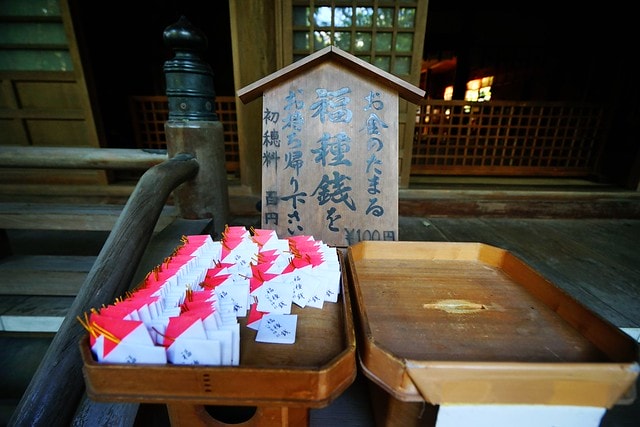 お金のたまる
¥100円
福種銭を
お持ち帰り下さい
初穂料 百円
福種銭